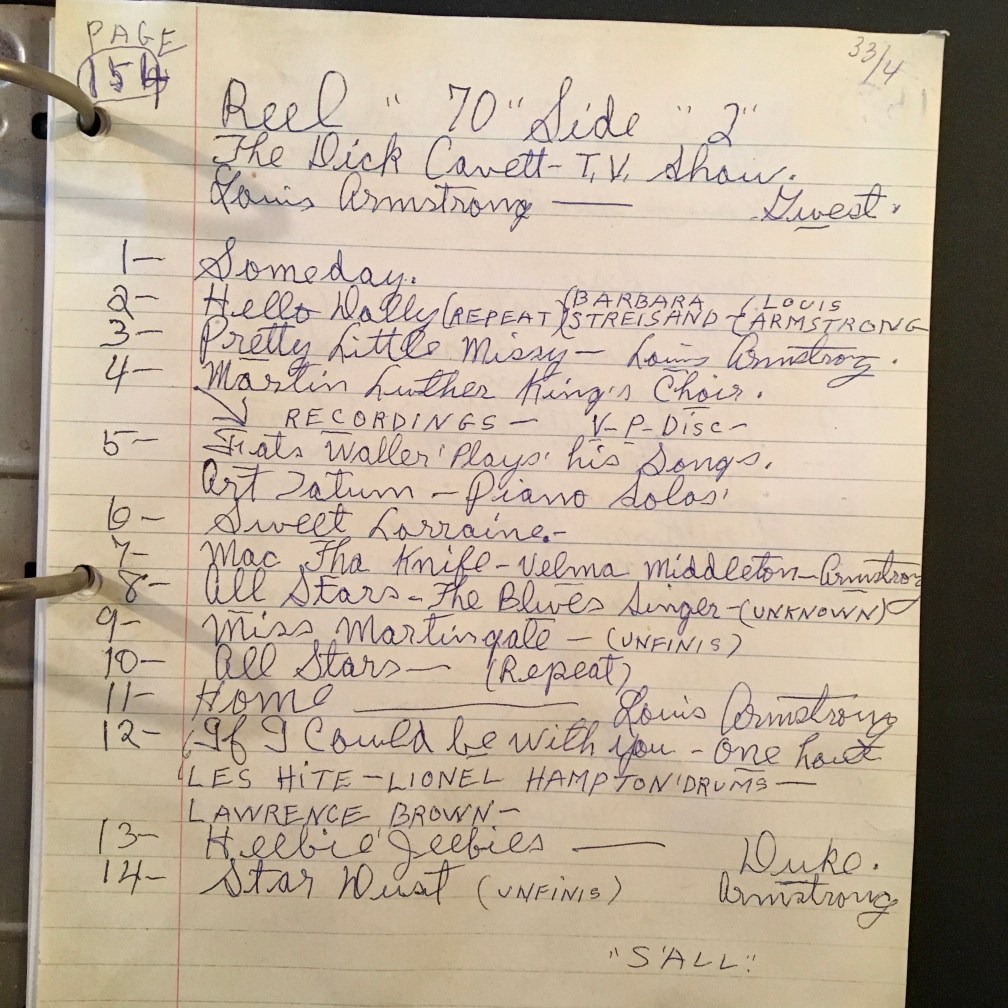 PAGE
154
33/4
Reel " 70" Side " 2"
The Dick Cavett- T.V. Show.
Louis Armstrong — Gwest.
1- Someday.
2- Hello Dolly (REPEAT) (BARBARA STREISAND - (LOUIS ARMSTRONG
3- Pretty Little Missy - Louis Armstrong.
4- Martin Luther King's Choir.
RECORDINGS - V-P-Disc-
5- Fats Waller 'Plays' his Songs.
Art Tatum - Piano Solos'
6- Sweet Lorraine.-
7- Mac Tha Knife - Velma Middleton - Armstrong
8- All Stars - The Blues Singer - (UNKNOWN)
9- Miss Martingale - (UNFINIS)
10- All Stars - (Repeat)
11- Home — Louis Armstrong
12- If I Could be with you - One hour
LES HITE - LIONEL HAMPTON'DRUMS -
LAWRENCE BROWN -
13- Heebie Jeebies — Duke.
14- Star Dust (UNFINIS) Armstrong
"S'ALL"